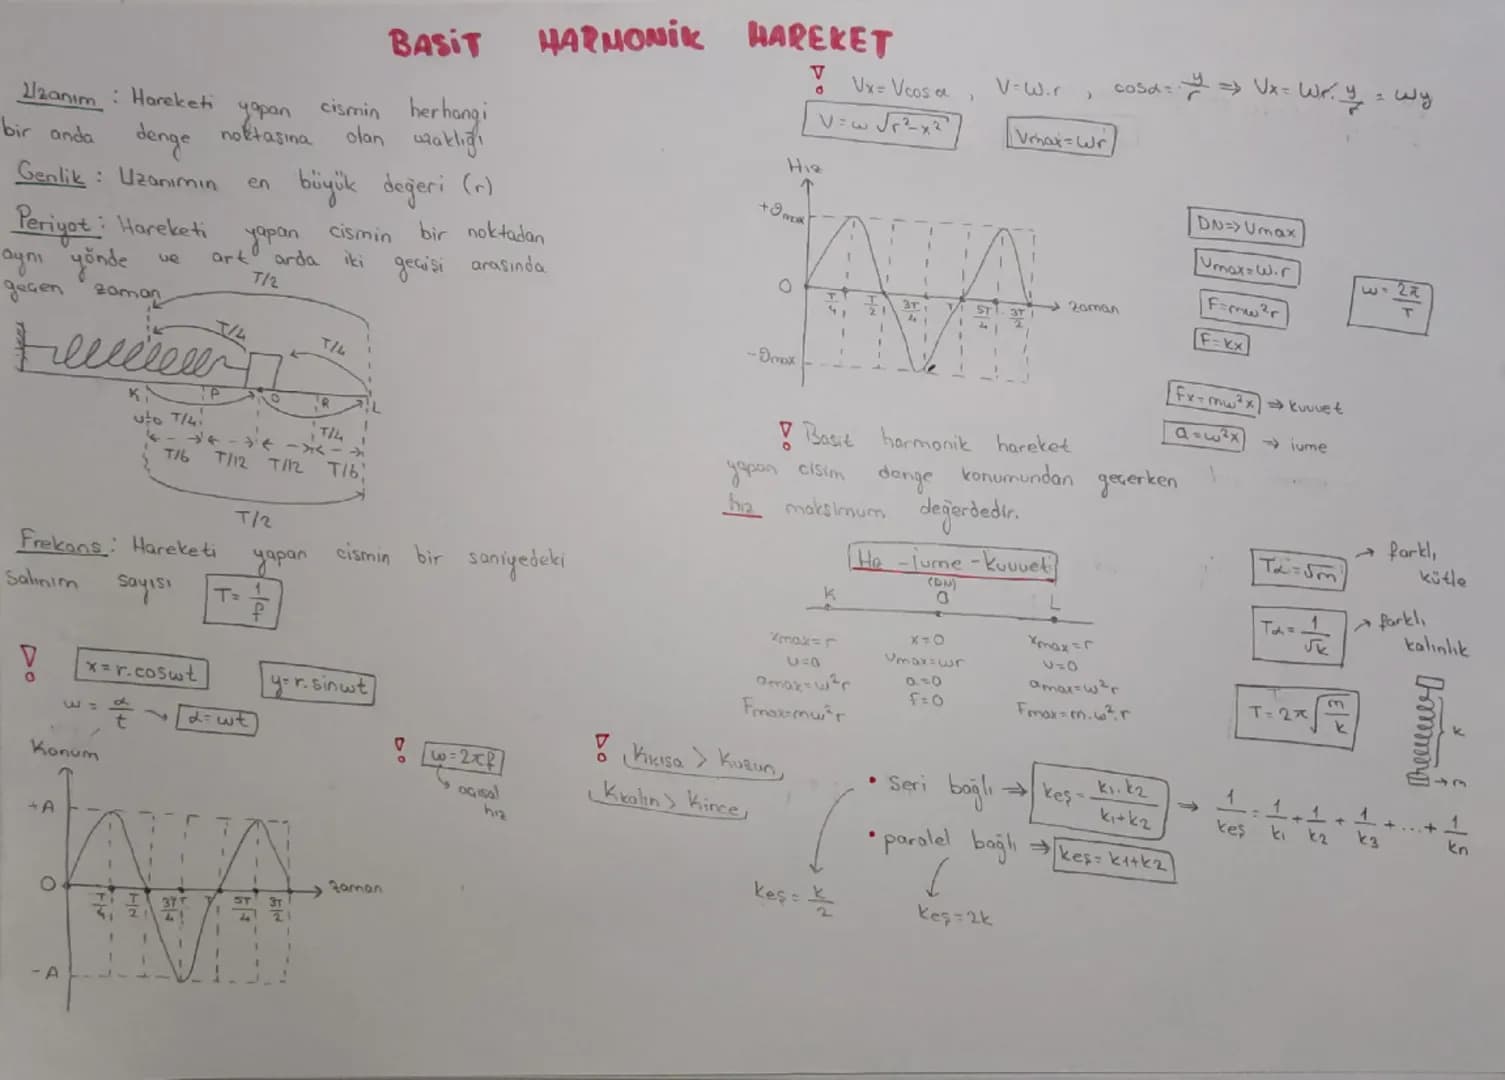 BASİT HARMONİK HAREKET
Uzanım : Hareketi yapan cismin herhangi
bir anda denge noktasına olan uzaklığı
Genlik : Uzanımın en büyük değeri (r)
Periyot : Hareketi yapan cismin bir noktadan
aynı yönde ve art arda iki geçişi arasında
geçen zaman
T/2
T/4
T/4
K P O R L
v=0 T/4
T/4
T/6 T/12 T/12 T/6
T/2
Frekans : Hareketi yapan cismin bir saniyedeki
salınım sayısı T = 1/f
x = r.coswt
y = r.sinwt
w = α/t → α = wt
Konum
+A
O
-A
T/4 T/2 3T/4 T 5T/4 3T/2
zaman
w = 2πf
açısal
hız
Vx = Vcosα , V = w.r , cosα = y/r ⇒ Vx = Wr. y/r = wy
V = w √r²-x²
Vmax = Wr
Hız
+ϑmax
O
-ϑmax
T/4 T/2 3T/4 T 5T/4 3T/2
zaman
DN ⇒ Vmax
Vmax = w.r
F = mw²r
F = kx
w = 2π/T
Fx = mw²x ⇒ kuvvet
a = w²x ⇒ ivme
Basit harmonik hareket
yapan cisim denge konumundan geçerken
hız maksimum değerdedir.
Hız - ivme - Kuvvet
(DN)
K O L
xmax = r x = 0 xmax = r
v = 0 vmax = wr v = 0
amax = w²r a = 0 amax = w²r
Fmax = mw²r f = 0 Fmax = m.w².r
Tα = √m → farklı
kütle
Tα = 1/√k → farklı
kalınlık
T = 2π √m/k
k
m
Kkısa > Kuzun
Kkalın > Kince
• seri bağlı ⇒ keş = k1.k2/k1+k2 ⇒ 1/keş = 1/k1 + 1/k2 + 1/k3 + ... + 1/kn
• paralel bağlı ⇒ keş = k1+k2
keş = k/2
keş = 2k